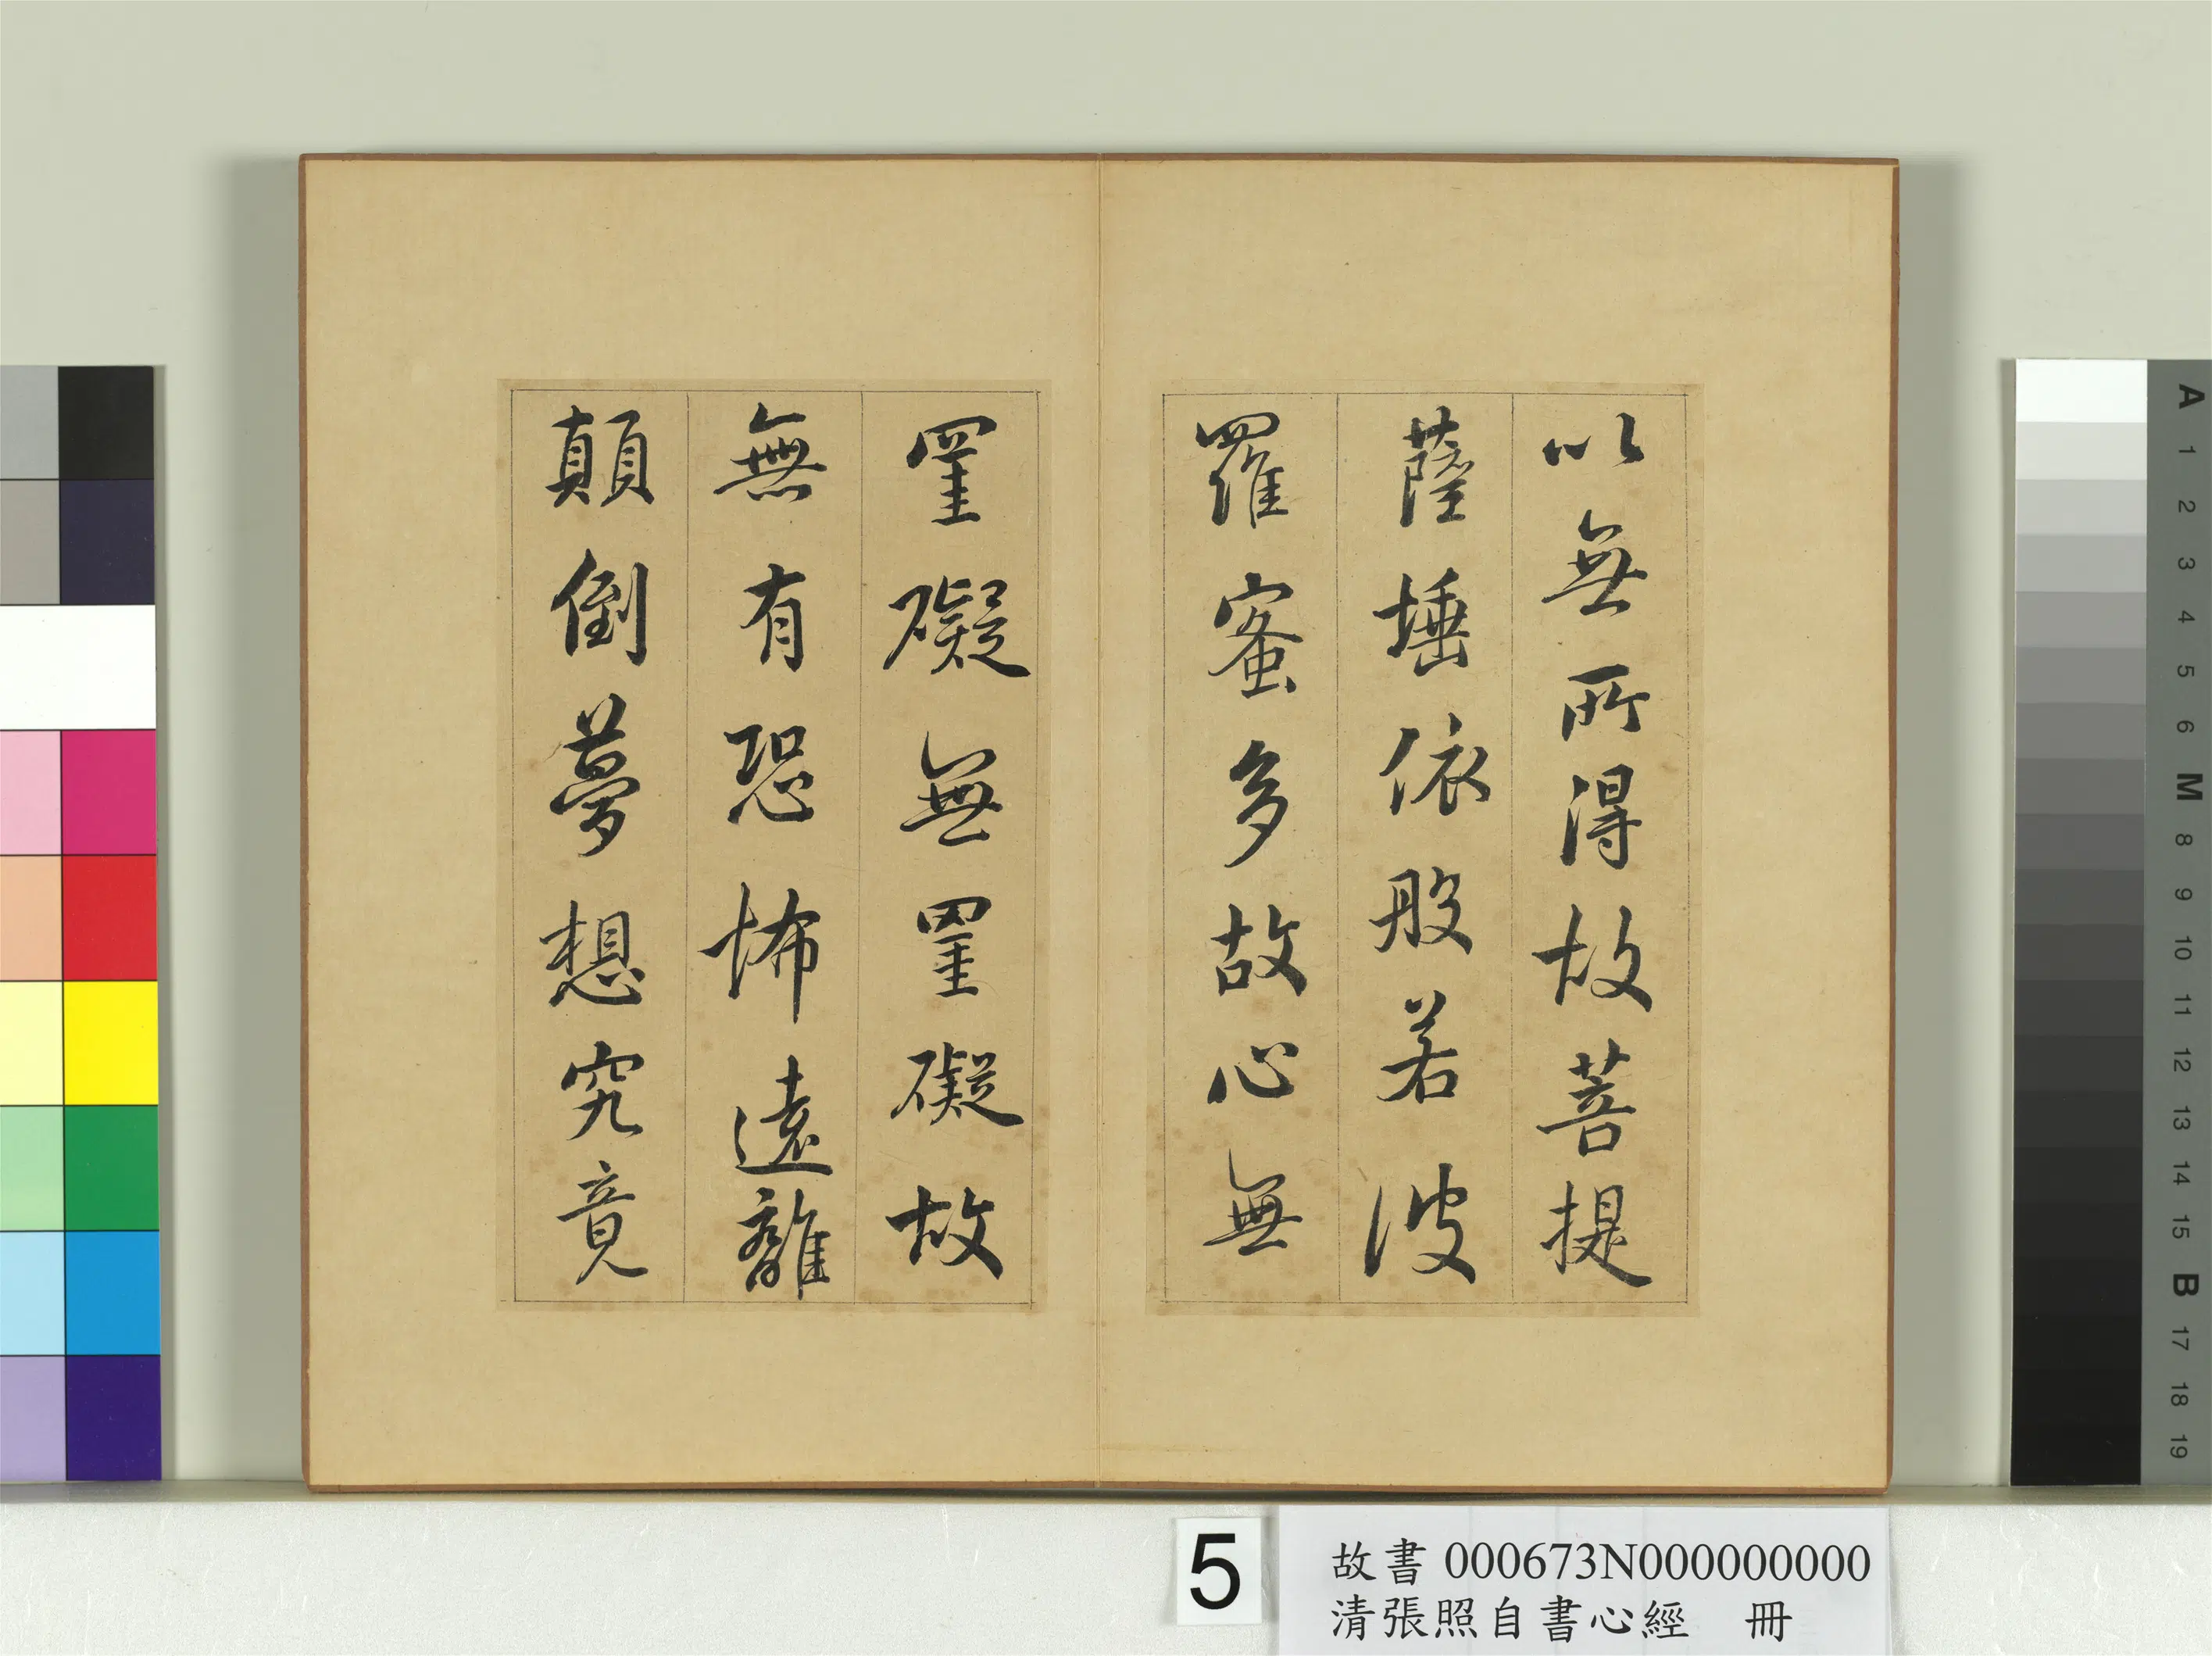 以無所得故菩提
薩埵依般若波
羅蜜多故心無
罣礙無罣礙故
無有恐怖遠離
顛倒夢想究竟
5
故書 000673N000000000
清張照自書心經 冊
A
1
2
3
4
5
6
M
8
9
10
11
12
13
14
15
B
17
18
19